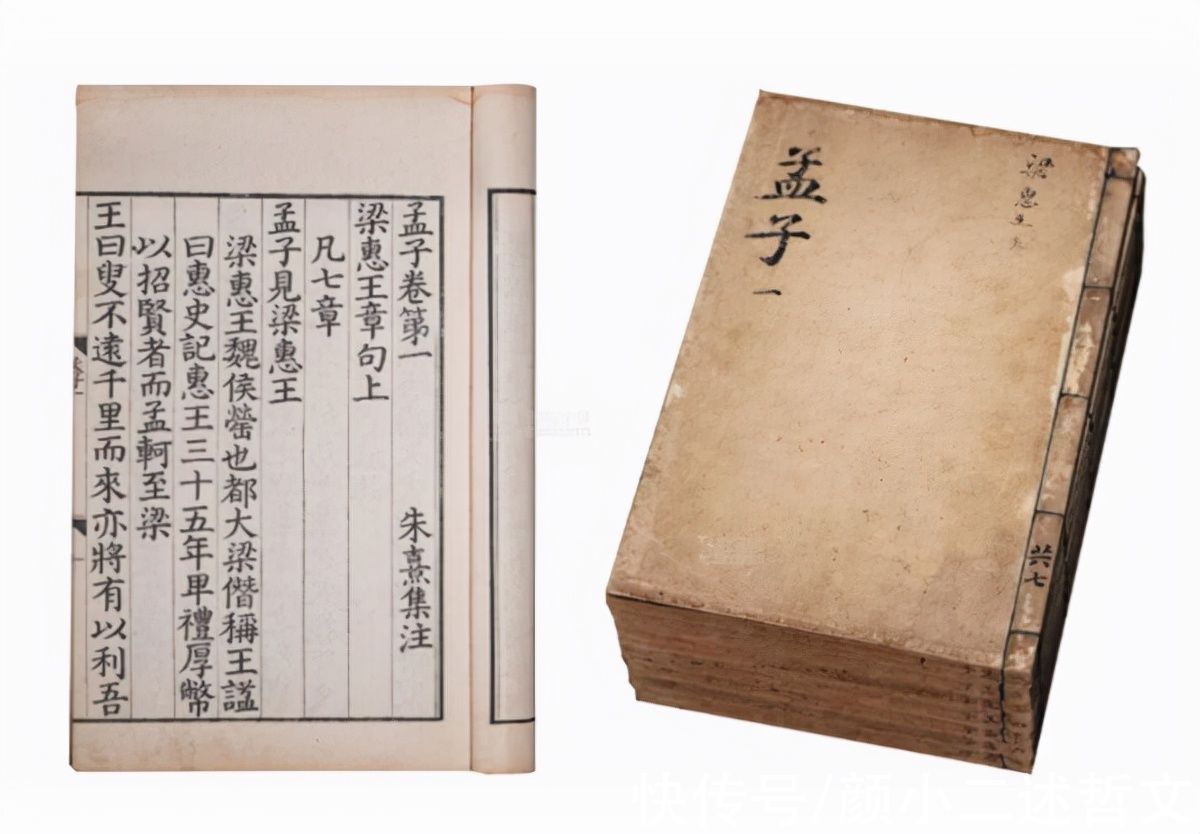 孟子卷第一 朱熹集注
梁惠王章句上
凡七章
孟子見梁惠王
梁惠王魏侯罃也都大梁僭稱王謚
曰惠史記惠王三十五年卑禮厚幣
以招賢者而孟軻至梁
王曰叟不遠千里而來亦將有以利吾
孟子一
梁惠王
共七
快传号/颜小二述哲文